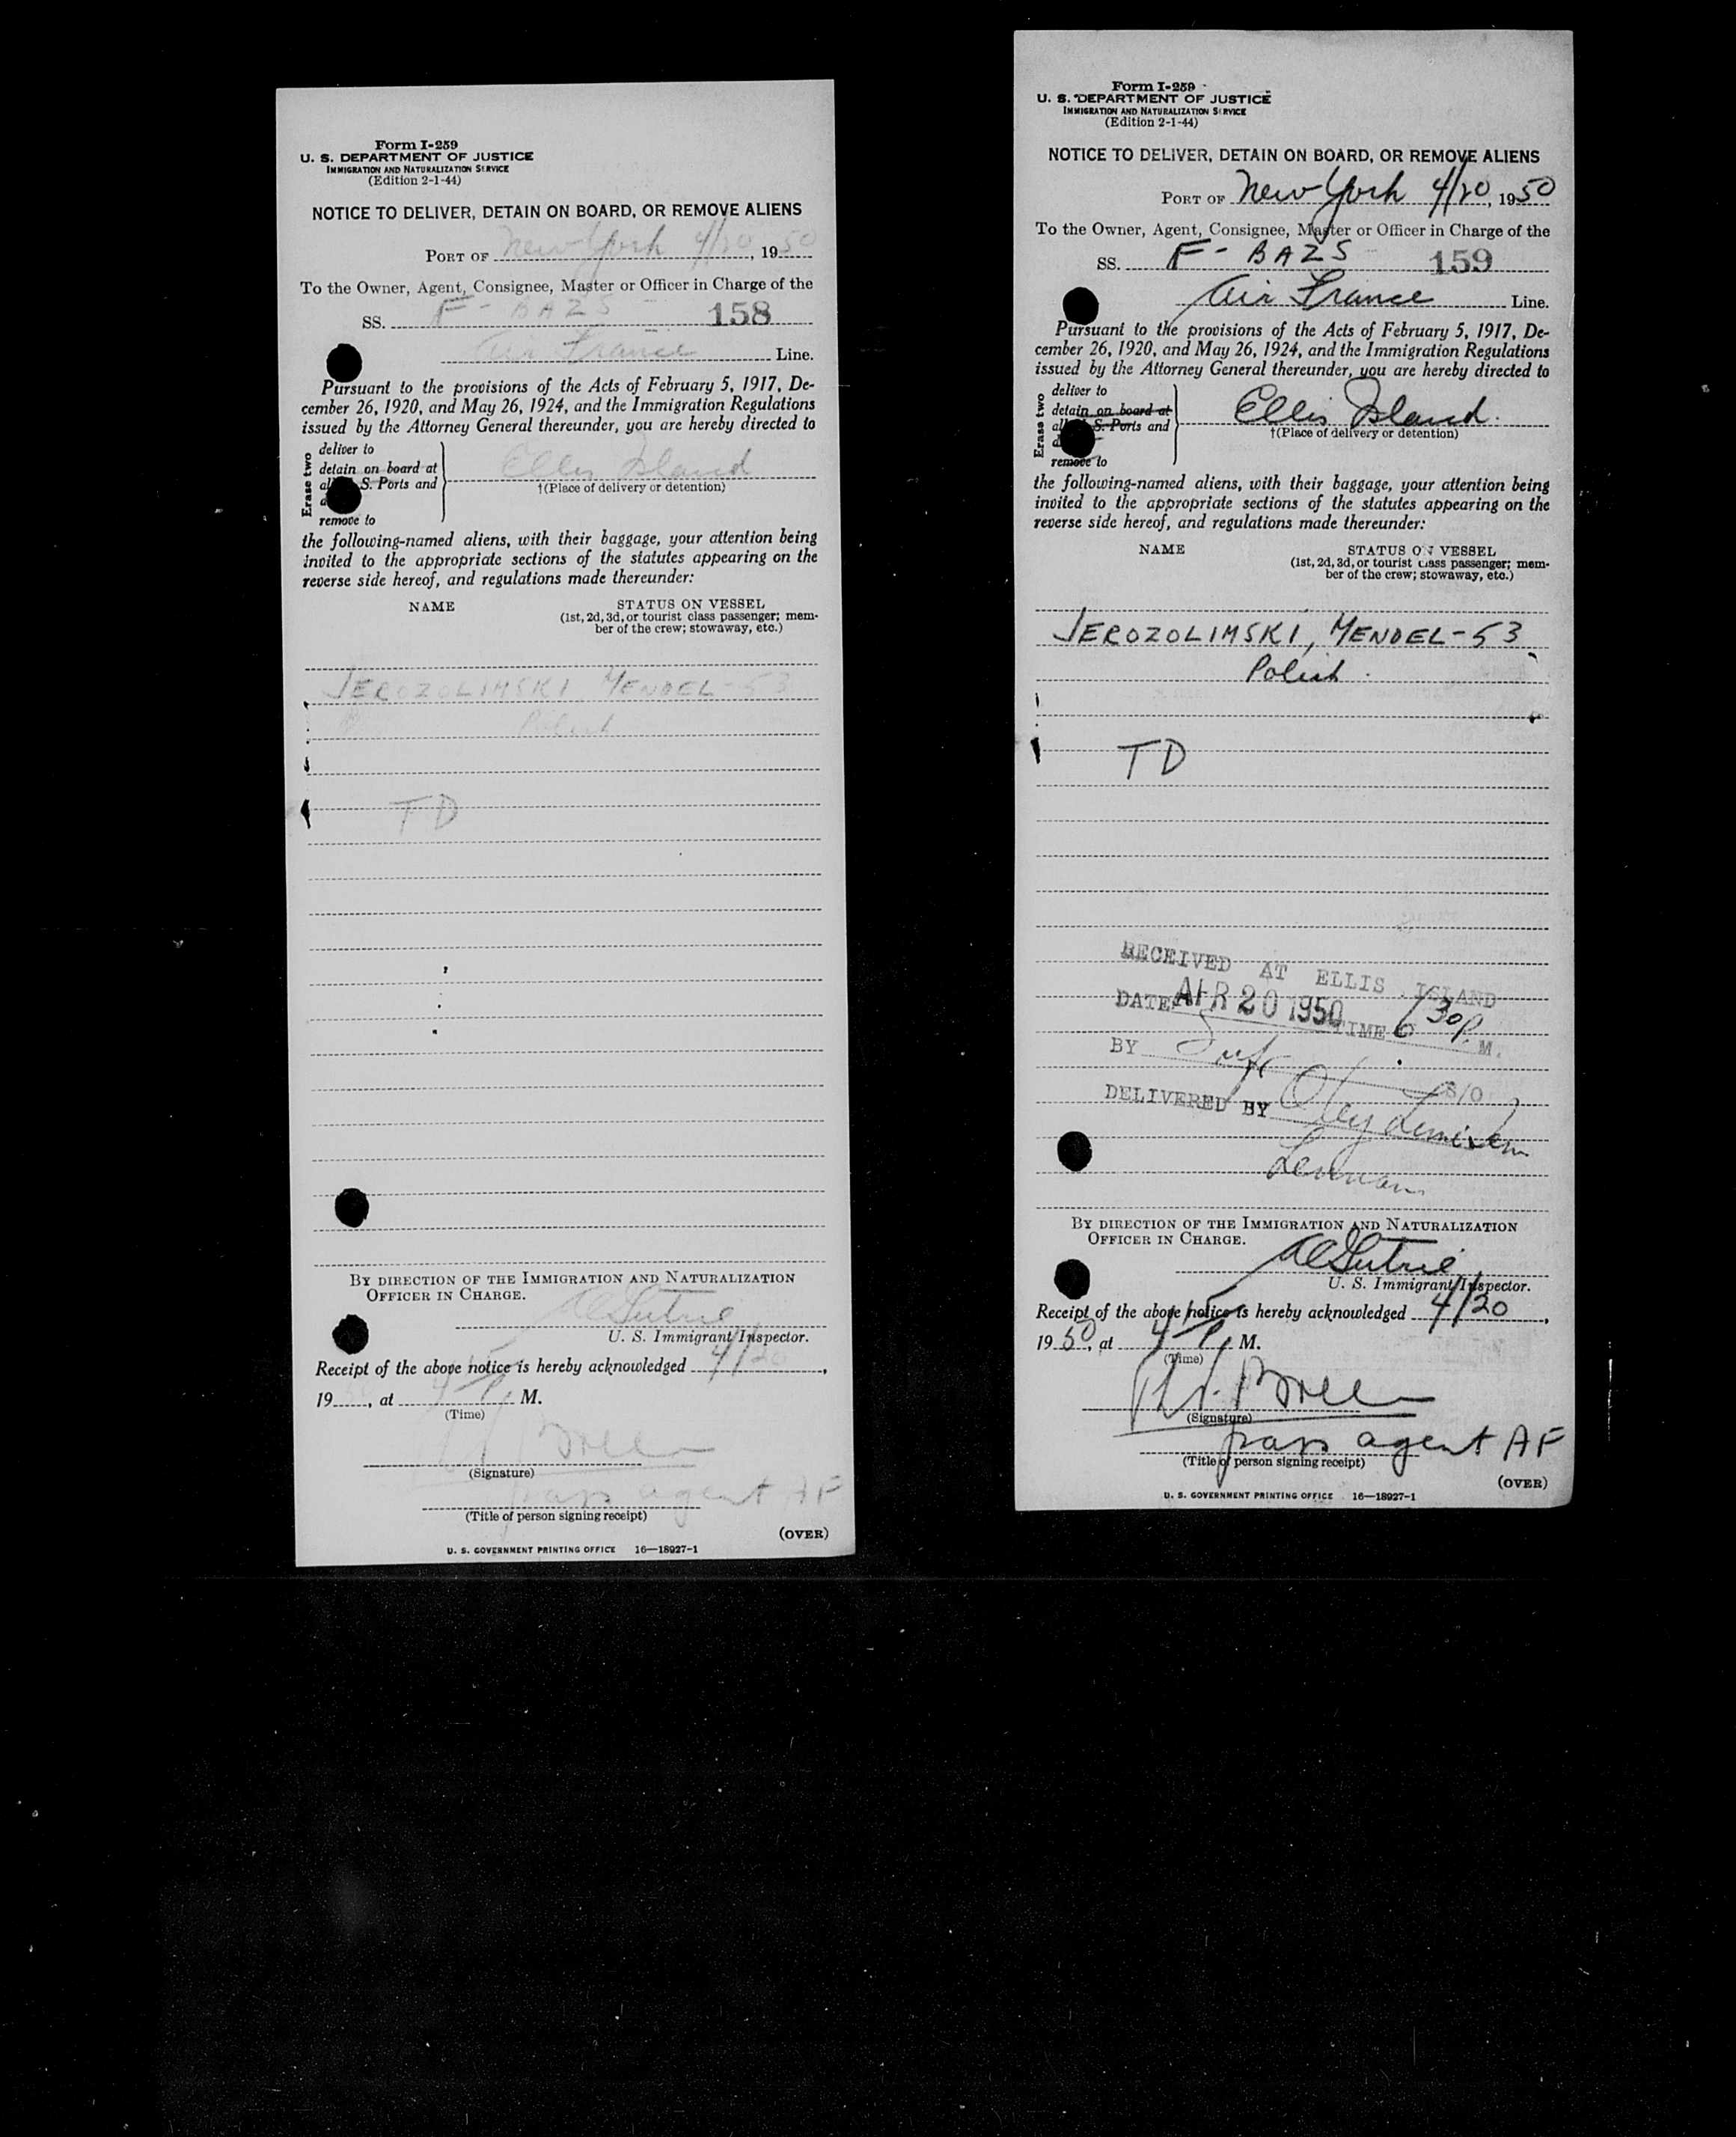 Form I-259
U. S. DEPARTMENT OF JUSTICE
IMMIGRATION AND NATURALIZATION SERVICE
(Edition 2-1-44)
NOTICE TO DELIVER, DETAIN ON BOARD, OR REMOVE ALIENS
PORT OF New York 4/20, 1950
To the Owner, Agent, Consignee, Master or Officer in Charge of the
SS. F - BAZS 158
Air France Line.
Pursuant to the provisions of the Acts of February 5, 1917, De-
cember 26, 1920, and May 26, 1924, and the Immigration Regulations
issued by the Attorney General thereunder, you are hereby directed to
Erase two
deliver to
detain on board at
S. Ports and
remove to
Ellis Island
†(Place of delivery or detention)
the following-named aliens, with their baggage, your attention being
invited to the appropriate sections of the statutes appearing on the
reverse side hereof, and regulations made thereunder:
NAME STATUS ON VESSEL
(1st, 2d, 3d, or tourist class passenger; mem-
ber of the crew; stowaway, etc.)
JEROZOLIMSKI MENDEL - 53
Polish
TD
BY DIRECTION OF THE IMMIGRATION AND NATURALIZATION
OFFICER IN CHARGE.
U. S. Immigrant Inspector.
Receipt of the above notice is hereby acknowledged 4/20,
19, at P. M.
(Time)
(Signature)
pass agent AF
(Title of person signing receipt)
(OVER)
U. S. GOVERNMENT PRINTING OFFICE 16—18927-1
Form I-259
U. S. DEPARTMENT OF JUSTICE
IMMIGRATION AND NATURALIZATION SERVICE
(Edition 2-1-44)
NOTICE TO DELIVER, DETAIN ON BOARD, OR REMOVE ALIENS
PORT OF New York 4/20, 1950
To the Owner, Agent, Consignee, Master or Officer in Charge of the
SS. F - BAZS 159
Air France Line.
Pursuant to the provisions of the Acts of February 5, 1917, De-
cember 26, 1920, and May 26, 1924, and the Immigration Regulations
issued by the Attorney General thereunder, you are hereby directed to
Erase two
deliver to
detain on board at
S. Ports and
remove to
Ellis Island
†(Place of delivery or detention)
the following-named aliens, with their baggage, your attention being
invited to the appropriate sections of the statutes appearing on the
reverse side hereof, and regulations made thereunder:
NAME STATUS ON VESSEL
(1st, 2d, 3d, or tourist class passenger; mem-
ber of the crew; stowaway, etc.)
JEROZOLIMSKI, MENDEL - 53
Polish
TD
RECEIVED AT ELLIS ISLAND
DATE APR 20 1950 TIME 6 30 P. M.
BY S/O
DELIVERED BY
BY DIRECTION OF THE IMMIGRATION AND NATURALIZATION
OFFICER IN CHARGE.
U. S. Immigrant Inspector.
Receipt of the above notice is hereby acknowledged 4/20,
1950, at P. M.
(Time)
(Signature)
pass agent AF
(Title of person signing receipt)
(OVER)
U. S. GOVERNMENT PRINTING OFFICE 16—18927-1